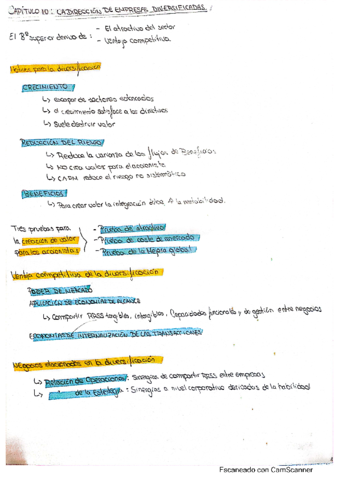 CAPÍTULO 10: LA DIRECCIÓN DE EMPRESAS DIVERSIFICADAS:
El Bº superior deriva de: - El atractivo del sector
- Ventaja competitiva.
Motivos para la diversificación
CRECIMIENTO:
↳ escapar de sectores estancados
↳ el crecimiento satisface a los directivos
↳ Suele destruir valor
REDUCCIÓN DEL RIESGO:
↳ Reduce la varianza de los flujos de Beneficios
↳ NO crea valor para el accionista
↳ CAPM reduce el riesgo no sistemático
BENEFICIOS:
↳ Para crear valor la integración la rentabilidad.
Tres pruebas para - Prueba de atractivo
la creación de valor - Prueba de coste de
para los accionistas - Prueba de la mejora global
Ventaja competitiva de la diversificación
PODER DE MERCADO
APLICACIÓN DE ECONOMÍAS DE ALCANCE
↳ Compartir RRSS tangibles, intangibles, Capacidades funcionales y de gestión entre negocios
ECONOMÍAS DE INTERNALIZACIÓN DE LAS TRANSACCIONES
Negocios relacionados en la diversificación
↳ Relación de Operaciones: Sinergias de compartir RRSS entre empresas
↳ " de la Estrategia: Sinergias a nivel corporativo derivadas de la habilidad
Escaneado con CamScanner